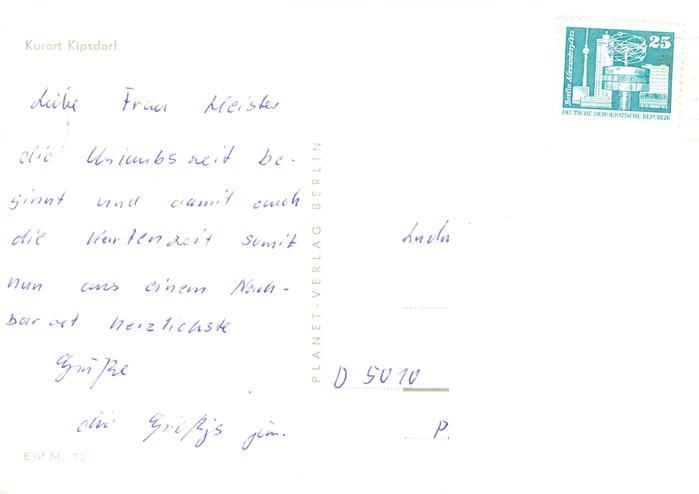 Kurort Kipsdorf
25
Berlin, Alexanderplatz
DEUTSCHE DEMOKRATISCHE REPUBLIK
Liebe Frau Meister
die Urlaubszeit be-
ginnt und damit auch
die Kartenzeit somit
nun aus einem Nach-
barort herzlichste
Grüße
die jun.
PLANET-VERLAG BERLIN
D 5010
P
EVP M